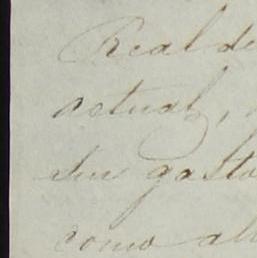 Real de
actual,
sus gasto
como all